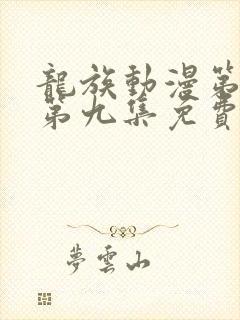 龍族動漫第
第九集免費
夢雲山